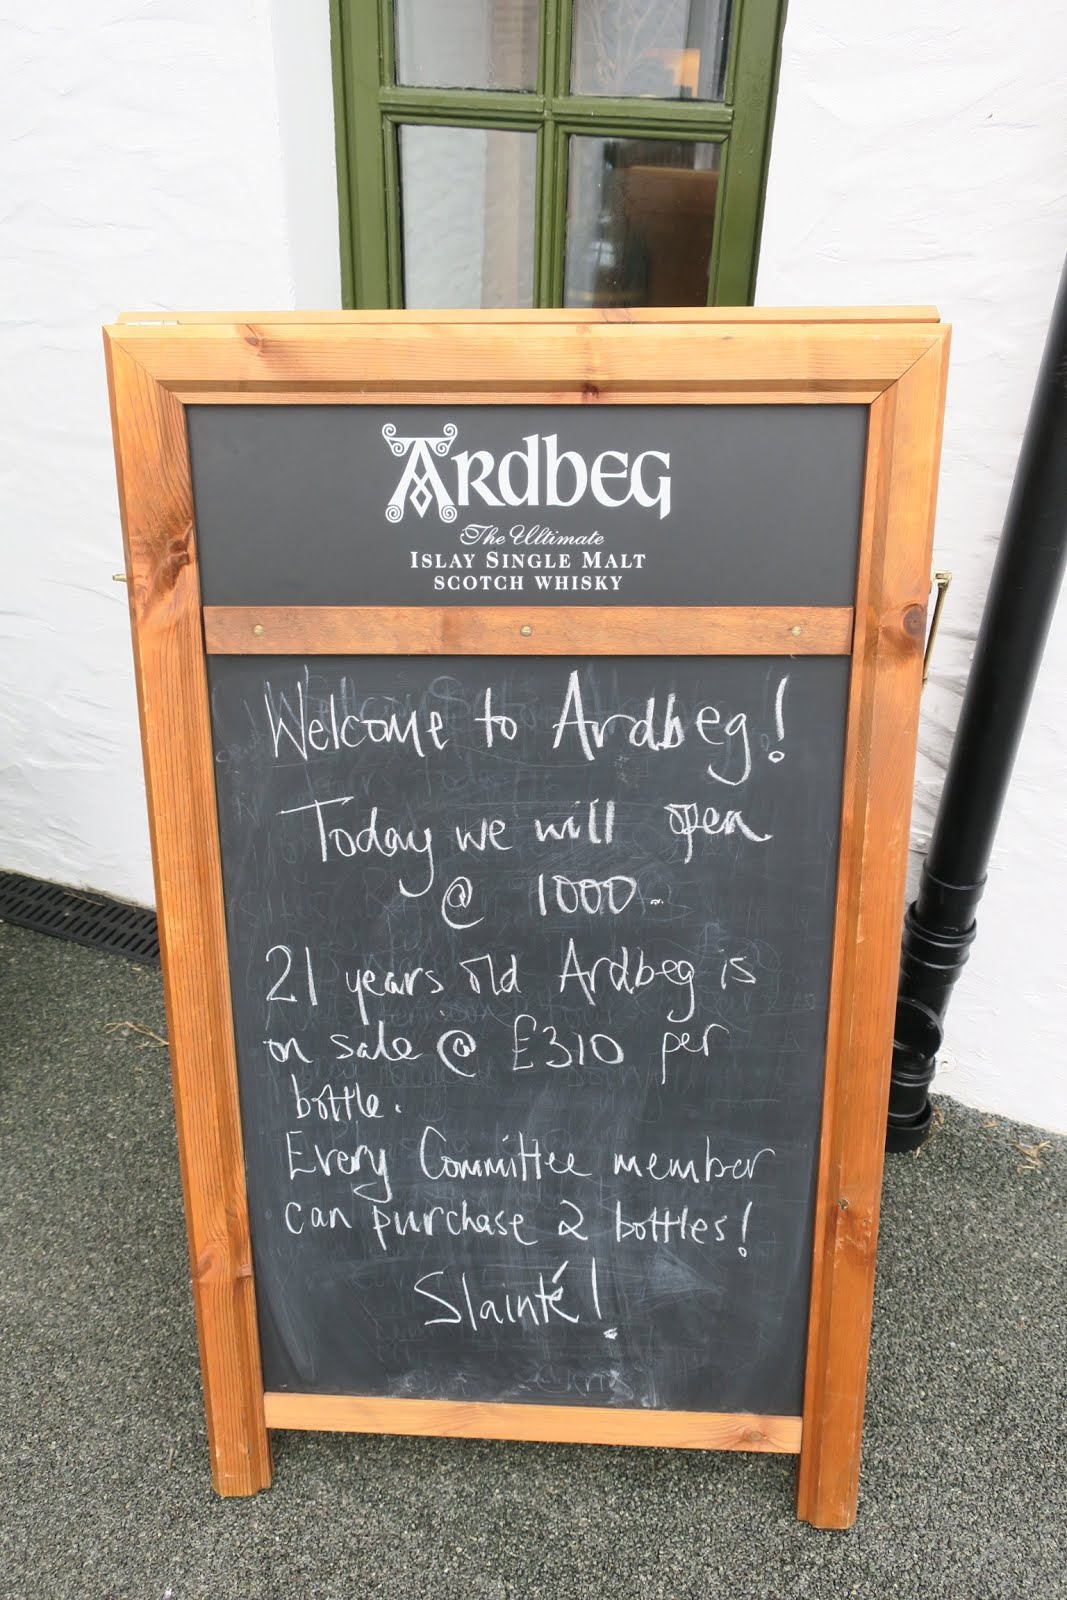 Ardbeg
The Ultimate
ISLAY SINGLE MALT
SCOTCH WHISKY
Welcome to Ardbeg!
Today we will open
@ 1000.
21 years old Ardbeg is
on sale @ £310 per
bottle.
Every Committee member
can purchase 2 bottles!
Slainté!